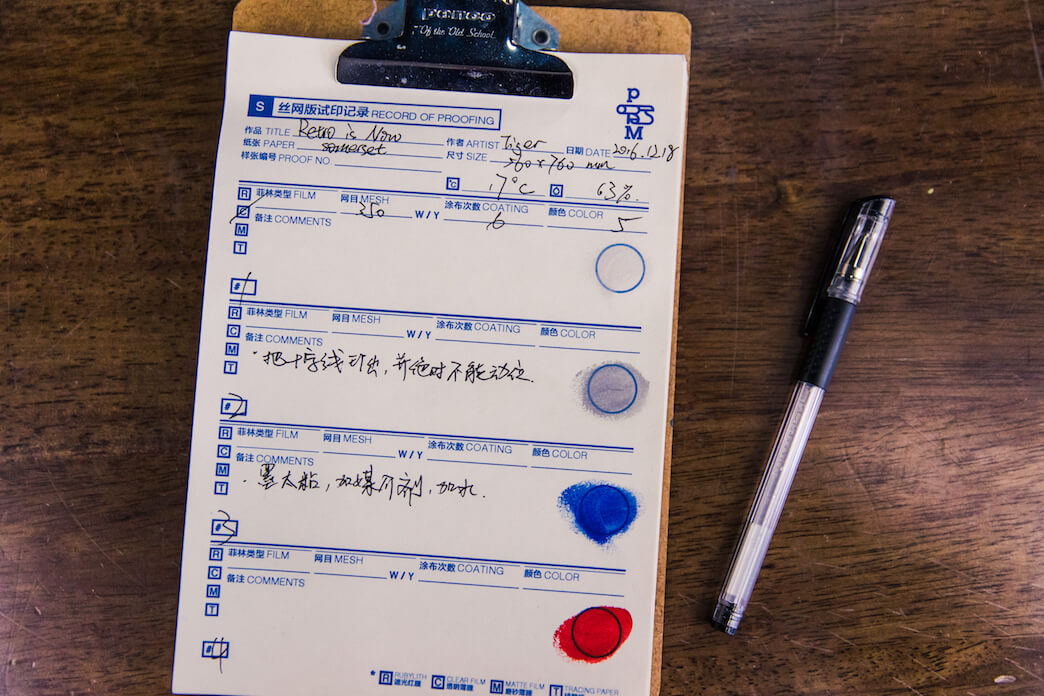 PENCO
"Of the Old School"
p
S
M
S 丝网版试印记录 RECORD OF PROOFING
作品 TITLE Retro is Now 作者 ARTIST Tiger 日期 DATE 2016.12.18
纸张 PAPER somerset 尺寸 SIZE 760 x 760 mm
样张编号 PROOF NO.
°C 17°C 63%.
R 菲林类型 FILM 网目 MESH 350 W / Y 涂布次数 COATING 6 颜色 COLOR 5
C 备注 COMMENTS
M
T
# 1
R 菲林类型 FILM 网目 MESH W / Y 涂布次数 COATING 颜色 COLOR
C 备注 COMMENTS
M · 把十字线引出, 并绝对不能动位.
T
# 2
R 菲林类型 FILM 网目 MESH W / Y 涂布次数 COATING 颜色 COLOR
C 备注 COMMENTS
M · 墨太黏, 加媒介剂, 加水.
T
# 3
R 菲林类型 FILM 网目 MESH W / Y 涂布次数 COATING 颜色 COLOR
C 备注 COMMENTS
M
T
# 4
* R RUBYLITH 遮光红膜 C CLEAR FILM 透明薄膜 M MATTE FILM 磨砂薄膜 T TRACING PAPER